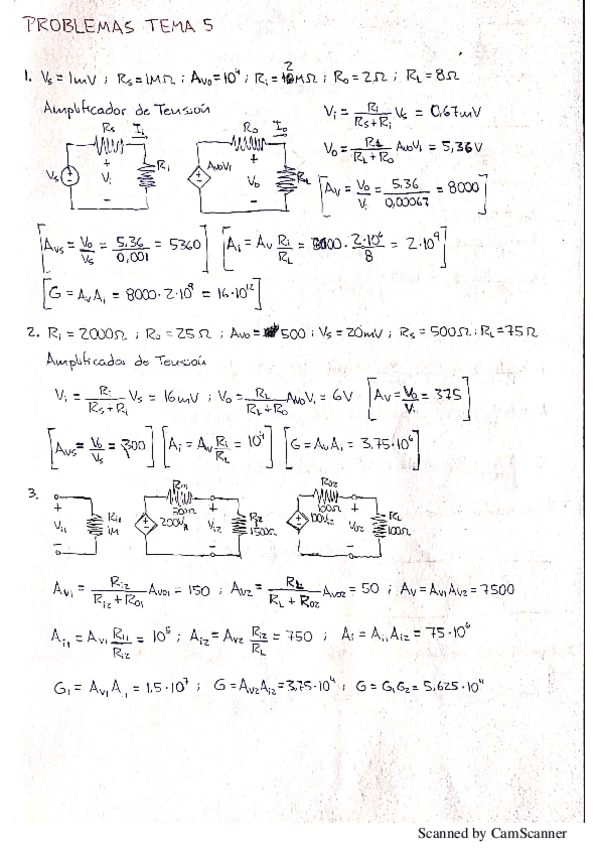 PROBLEMAS TEMA 5
1. Vs = 1mV ; Rs = 1MΩ ; Avo = 10⁴ ; Ri = 2MΩ ; Ro = 2Ω ; RL = 8Ω
Amplificador de Tensión
Vi = Ri/(Rs+Ri) Vs = 0,67mV
Vo = RL/(RL+Ro) AvoVi = 5,36V
[Av = Vo/Vi = 5,36/0,00067 = 8000]
Rs Ii Ro Io
Vs + Vi - Ri AvoVi + Vo - RL
[Avs = Vo/Vs = 5,36/0,001 = 5360] [Ai = Av Ri/RL = 8000 · 2·10⁶/8 = 2·10⁹]
[G = AvAi = 8000·2·10⁹ = 16·10¹²]
2. Ri = 2000Ω ; Ro = 25Ω ; Avo = 500 ; Vs = 20mV ; Rs = 500Ω ; RL = 75Ω
Amplificador de Tensión
Vi = Ri/(Rs+Ri) Vs = 16mV ; Vo = RL/(RL+Ro) AvoVi = 6V [Av = Vo/Vi = 375]
[Avs = Vo/Vs = 300] [Ai = Av Ri/RL = 10⁴] [G = AvAi = 3.75·10⁶]
3.
+ Vi1 - Ri1 1M 500Ω + Vi2 - Ri2 1500Ω Ro2 100Ω 100Vi2 + Vo2 - RL 100Ω
Av1 = Ri2/(Ri2+Ro1) Avo1 = 150 ; Av2 = RL/(RL+Ro2) Avo2 = 50 ; Av = Av1Av2 = 7500
Ai1 = Av1 Ri1/Ri2 = 10⁵ ; Ai2 = Av2 Ri2/RL = 750 ; Ai = Ai1Ai2 = 75·10⁶
G1 = Av1Ai1 = 1,5·10⁷ ; G = Av2Ai2 = 3,75·10⁴ ; G = G1G2 = 5,625·10¹¹
Scanned by CamScanner